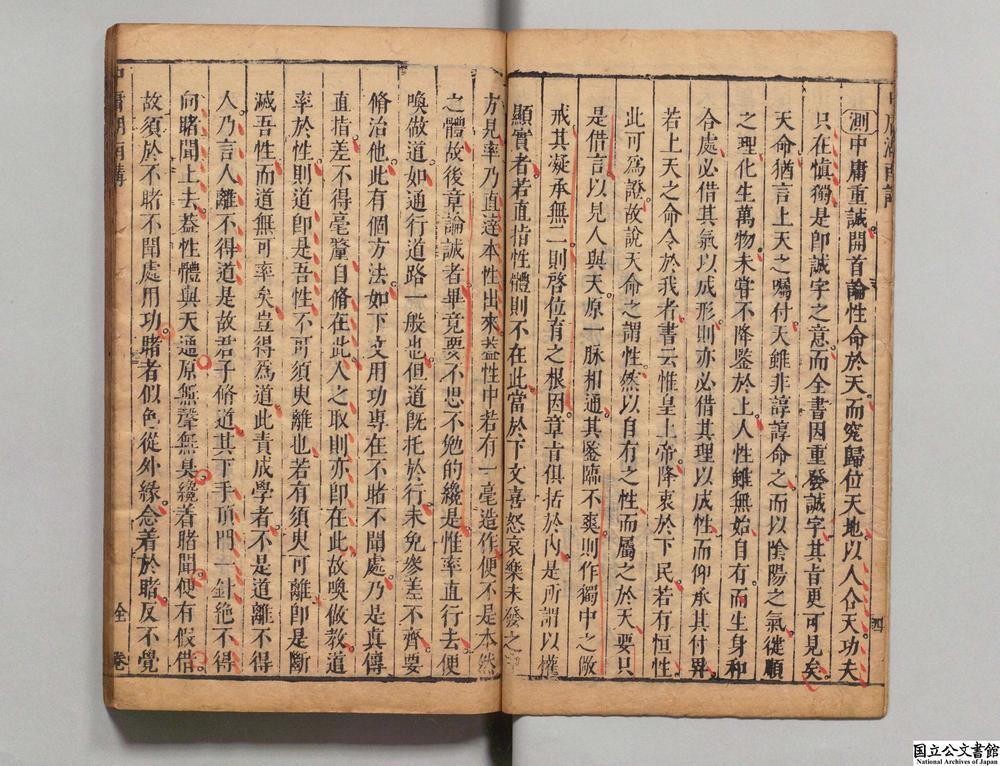 測中庸重誠開首論性命於天而究歸位天地以人合天功夫
只在慎獨是卽誠字之意而全書因重發誠字其旨更可見矣
天命猶言上天之囑付天雖非諄諄命之而以陰陽之氣從順
之理化生萬物未嘗不降鑒於上人性雖無始自有而生身和
合處必借其氣以成形則亦必借其理以成性而仰承其付畀
若上天之命令於我者書云惟皇上帝降衷於下民若有恒性
此可爲證故說天命之謂性然以自有之性而屬之於天要只
是借言以見人與天原一脉相通其鑒臨不爽則作獨中之儆
戒其凝承無二則啓位育之根因章旨俱括於內是所謂以權
顯實者若直指性體則不在此當於下文喜怒哀樂未發之
四
方見率乃直達本性出來葢性中若有一毫造作便不是本然
之體故後章論誠者畢竟要不思不勉的纔是惟率直行去便
喚做道如通行道路一般也但道旣托於行未免參差不齊要
脩治他此有個方法如下文用功專在不睹不聞處乃是真傳
直指差不得毫釐自脩在此人之取則亦卽在此故喚做教道
率於性則道卽是吾性不可須臾離也若有須臾可離卽是斷
滅吾性而道無可率矣豈得爲道此責成學者不是道離不得
人乃言人離不得道是故君子脩道其下手頂門一針絶不得
向睹聞上去葢性體與天通原無聲無臭纔着睹聞便有假借
故須於不睹不聞處用功睹者似色從外緣念着於睹反不覺
全
卷
国立公文書館
National Archives of Japan